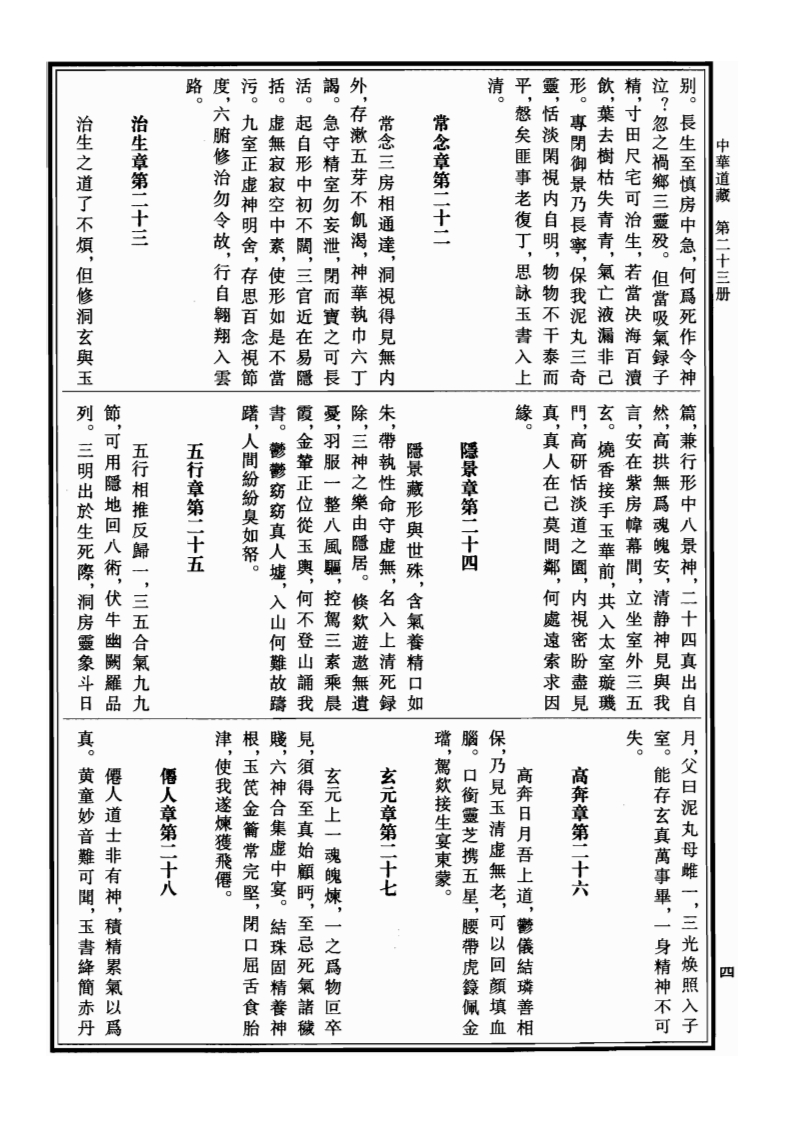 中華道藏　第二十三册
四
别。長生至慎房中急，何爲死作令神
泣？忽之禍鄉三靈殁。但當吸氣録子
精，寸田尺宅可治生，若當决海百瀆
飲，葉去樹枯失青青，氣亡液漏非己
形。專閉御景乃長寧，保我泥丸三奇
靈，恬淡閑視内自明，物物不干泰而
平，慤矣匪事老復丁，思詠玉書入上
清。
常念章第二十二
常念三房相通達，洞視得見無内
外，存漱五芽不飢渴，神華執巾六丁
謁。急守精室勿妄泄，閉而寶之可長
活。起自形中初不闊，三官近在易隱
括。虛無寂寂空中素，使形如是不當
污。九室正虛神明舍，存思百念視節
度，六腑修治勿令故，行自翱翔入雲
路。
治生章第二十三
治生之道了不煩，但修洞玄與玉
篇，兼行形中八景神，二十四真出自
然，高拱無爲魂魄安，清静神見與我
言，安在紫房幃幕間，立坐室外三五
玄。燒香接手玉華前，共入太室璇璣
門，高研恬淡道之園，内視密盼盡見
真，真人在己莫問鄰，何處遠索求因
緣。
隱景章第二十四
隱景藏形與世殊，含氣養精口如
朱，帶執性命守虛無，名入上清死録
除，三神之樂由隱居。倏欻遊遨無遺
憂，羽服一整八風驅，控駕三素乘晨
霞，金輦正位從玉輿，何不登山誦我
書。鬱鬱窈窈真人墟，入山何難故躊
躇，人間紛紛臭如帤。
五行章第二十五
五行相推反歸一，三五合氣九九
節，可用隱地回八術，伏牛幽闕羅品
列。三明出於生死際，洞房靈象斗日
月，父曰泥丸母雌一，三光焕照入子
室。能存玄真萬事畢，一身精神不可
失。
高奔章第二十六
高奔日月吾上道，鬱儀結璘善相
保，乃見玉清虛無老，可以回顔填血
腦。口銜靈芝携五星，腰帶虎籙佩金
璫，駕欻接生宴東蒙。
玄元章第二十七
玄元上一魂魄煉，一之爲物叵卒
見，須得至真始顧眄，至忌死氣諸穢
賤，六神合集虛中宴。結珠固精養神
根，玉笢金籥常完堅，閉口屈舌食胎
津，使我遂煉獲飛僊。
僊人章第二十八
僊人道士非有神，積精累氣以爲
真。黄童妙音難可聞，玉書絳簡赤丹